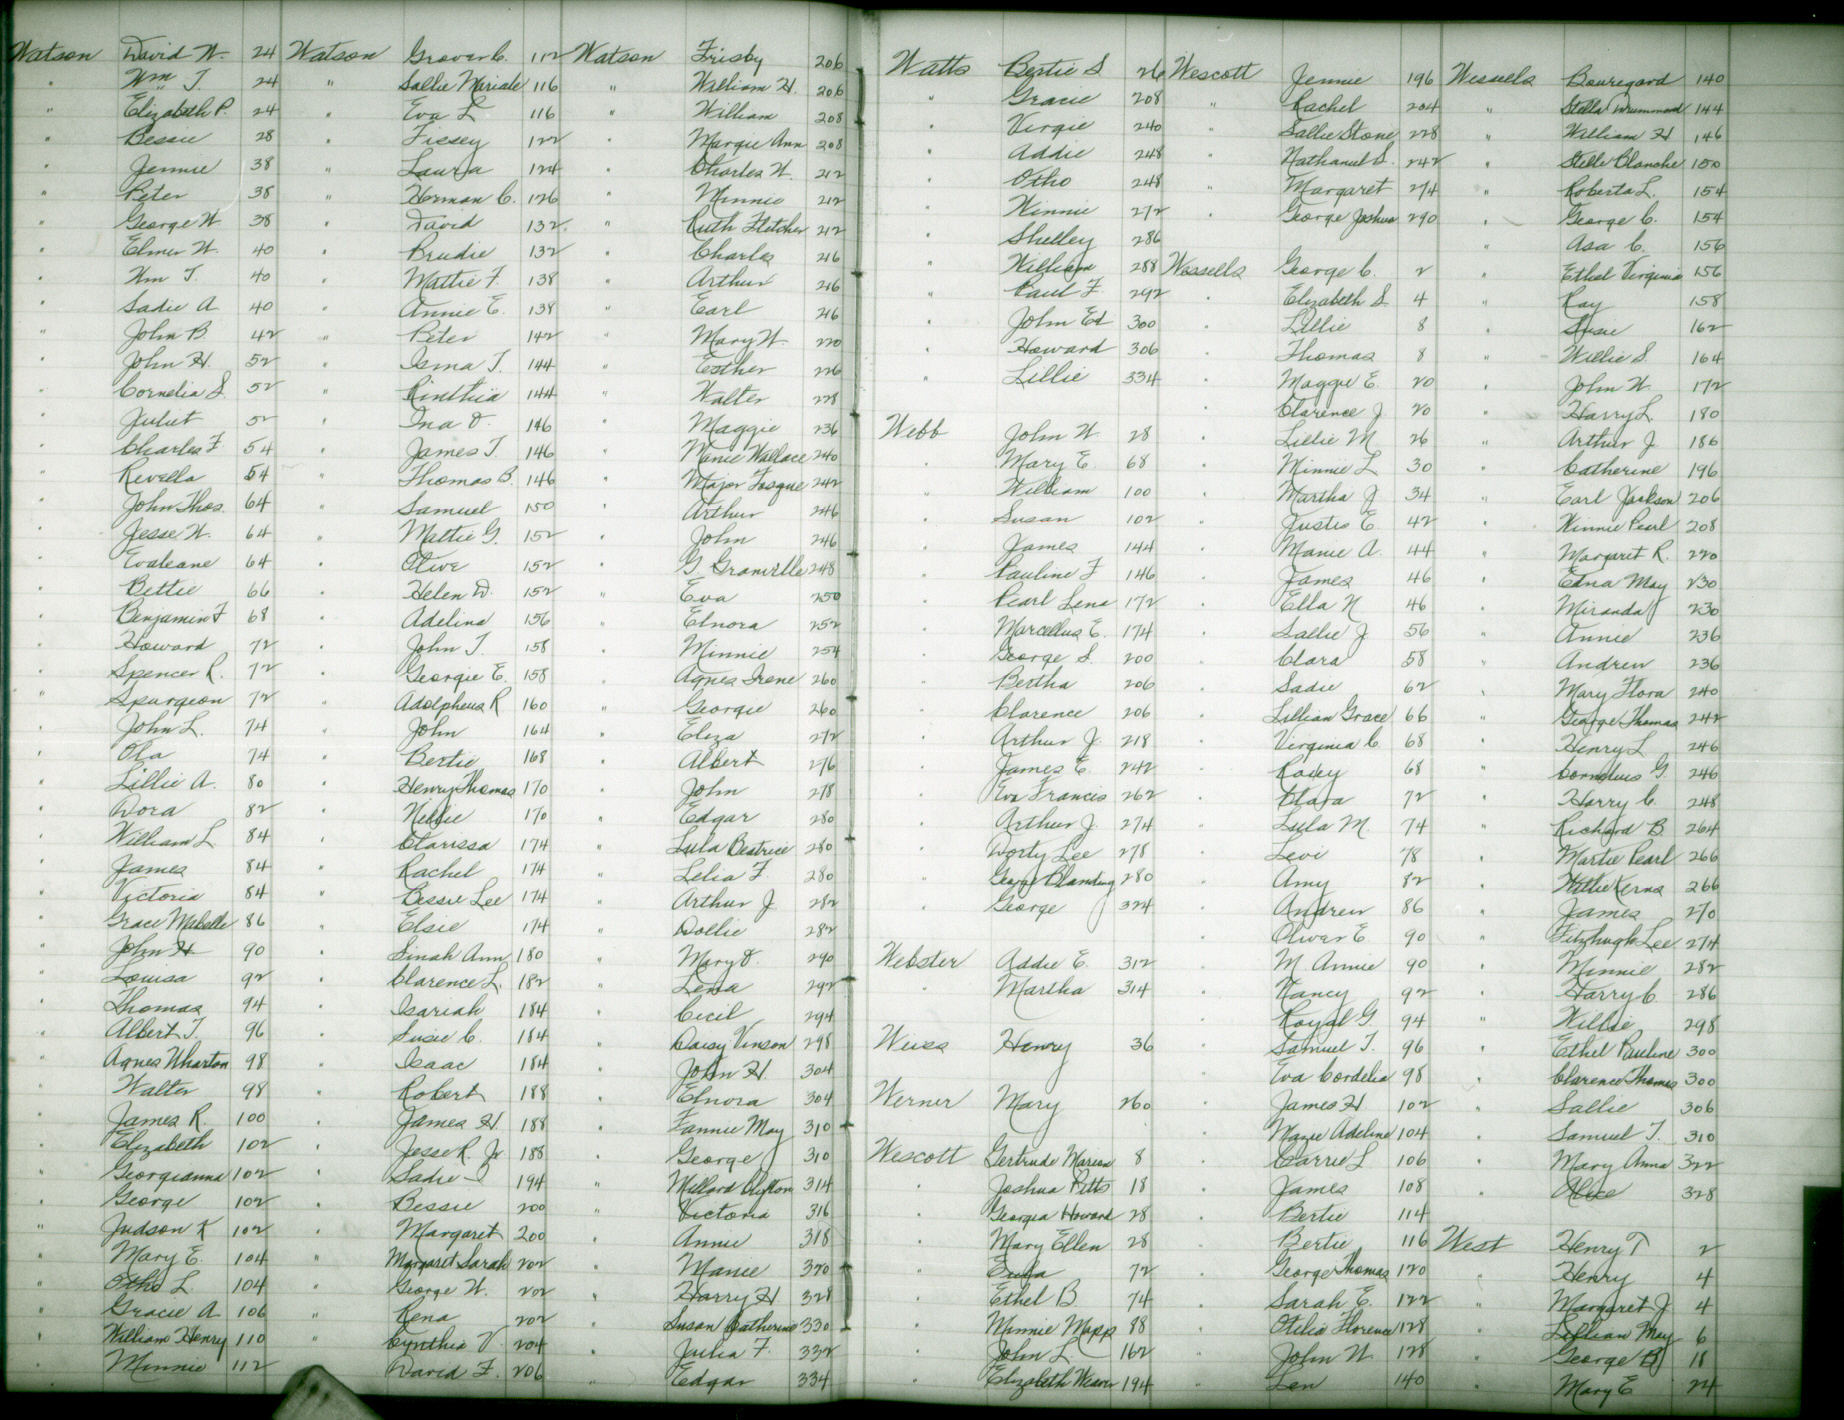 Watson David W. 24
" Wm T. 24
" Elizabeth P. 24
" Bessie 28
" Jennie 38
" Peter 38
" George W 38
" Elmer W. 40
" Wm T. 40
" Sadie A 40
" John B 42
" John H. 52
" Cornelia S 52
" Juliet 52
" Charles F 54
" Revella 54
" John Thos. 64
" Jesse W. 64
" Evaleane 64
" Bettie 66
" Benjamin F 68
" Howard 72
" Spencer R. 72
" Spurgeon 72
" John L. 74
" Ola 74
" Lillie A. 80
" Dora 82
" William L 84
" James 84
" Victoria 84
" Grace Mabelle 86
" John H 90
" Louisa 92
" Thomas 94
" Albert T. 96
" Agnes Wharton 98
" Walter 98
" James R. 100
" Elizabeth 102
" Georgianna 102
" George 102
" Judson K 102
" Mary E. 104
" Otho L. 104
" Gracie A 106
" William Henry 110
" Minnie 112
Watson Grover C. 112
" Sallie Mariale 116
" Eva L 116
" Fissey 122
" Laura 124
" Herman C. 126
" David 132
" Brudie 132
" Mattie F. 138
" Annie E. 138
" Peter 142
" Isma T. 144
" Rinthia 144
" Ina D. 146
" James T. 146
" Thomas B. 146
" Samuel 150
" Mattie G. 152
" Olive 152
" Helen D. 152
" Adelina 156
" John T. 158
" Georgie E. 158
" Adolpheus R 160
" John 164
" Bertie 168
" Henry Thomas 170
" Nellie 170
" Clarissa 174
" Rachel 174
" Bessie Lee 174
" Elsie 174
" Sinah Ann 180
" Clarence L. 182
" Isariah 184
" Susie C. 184
" Isaac 184
" Robert 188
" James H. 188
" Jesse R. Jr 188
" Sadie 194
" Bessie 200
" Margaret 200
" Margaret Sarah 202
" George W. 202
" Rena 202
" Cynthia V. 204
" David F. 206
Watson Frisby 206
" William H. 206
" William 208
" Margie Ann 208
" Charles W. 212
" Minnie 212
" Ruth Fletcher 212
" Charles 216
" Arthur 216
" Earl 216
" Mary W. 220
" Esther 226
" Walter 228
" Maggie 236
" Manie Wallace 240
" Major Fosque 242
" Arthur 246
" John 246
" G. Granville 248
" Eva 250
" Elnora 252
" Minnie 254
" Agnes Irene 260
" Georgie 260
" Eliza 272
" Albert 276
" John 278
" Edgar 280
" Lula Beatrice 280
" Lelia F. 280
" Arthur J. 282
" Dollie 282
" Mary D. 290
" Lena 292
" Cecil 294
" Daisy Vinson 298
" John H. 304
" Elnora 304
" Fannie May 310
" George 310
" Millard Clifton 314
" Victoria 316
" Annie 318
" Manie 320
" Harry H 328
" Susan Catherine 330
" Julia F. 332
" Edgar 334
Watts Bertie S 26
" Gracie 208
" Virgie 240
" Addie 248
" Otho 248
" Winnie 272
" Shelley 286
" William 288
" Paul F. 292
" John Ed 300
" Howard 306
" Lillie 334
Webb John W. 28
" Mary E. 68
" William 100
" Susan 102
" James 144
" Pauline F 146
" Pearl Lena 172
" Marcellus E. 174
" George S. 200
" Bertha 206
" Clarence 206
" Arthur J. 218
" James E. 242
" Eva Francis 262
" Arthur J. 274
" Dorty Lee 278
" George Blanding 280
" George 324
Webster Addie E. 312
" Martha 314
Weiss Henry 36
Werner Mary 260
Wescott Gertrude Marion 8
" Joshua Pitts 18
" Georgia Howard 28
" Mary Ellen 28
" Eula 72
" Ethel B 74
" Minnie Mapp 88
" John L. 162
" Elizabeth Weaver 194
Wescott Jennie 196
" Rachel 204
" Sallie Stone 228
" Nathaniel S. 242
" Margaret 274
" George Joshua 290
Wessells George C. 2
" Elizabeth S 4
" Lillie 8
" Thomas 8
" Maggie E. 20
" Clarence J. 20
" Lillie M 26
" Minnie L 30
" Martha J 34
" Justis E. 42
" Manie A. 44
" James 46
" Ella N 46
" Sallie J 56
" Clara 58
" Sadie 62
" Lillian Grace 66
" Virginia C 68
" Rodey 68
" Clara 72
" Lula M. 74
" Levi 78
" Amy 82
" Andrew 86
" Oliver E 90
" M. Annie 90
" Nancy 92
" Royal G 94
" Samuel T. 96
" Eva Cordelia 98
" James H 102
" Mazie Adeline 104
" Carrie L 106
" James 108
" Bertie 114
" Bertie 116
" George Thomas 120
" Sarah E. 122
" Otilia Florence 128
" John W. 128
" Len 140
Wessells Bouregard 140
" Stella Drummond 144
" William H 146
" Stelle Blanche 150
" Roberta L. 154
" George C. 154
" Asa C. 156
" Ethel Virginia 156
" Ray 158
" Susie 162
" Willie S. 164
" John W. 172
" Harry L. 180
" Arthur J 186
" Catherine 196
" Earl Jackson 206
" Winnie Pearl 208
" Margaret R. 220
" Edna May 230
" Miranda J 230
" Annie 236
" Andrew 236
" Mary Flora 240
" George Thomas 242
" Henry L 246
" Cornelius G. 246
" Harry C. 248
" Richard B. 264
" Martie Pearl 266
" Willie Kerns 266
" James 270
" Fitzhugh Lee 274
" Minnie 282
" Harry C. 286
" Willie 298
" Ethel Pauline 300
" Clarence Thomas 300
" Sallie 306
" Samuel T. 310
" Mary Anna 322
" Alice 328
West Henry T 2
" Henry 4
" Margaret J 4
" Lillian May 6
" George B 18
" Mary E 24